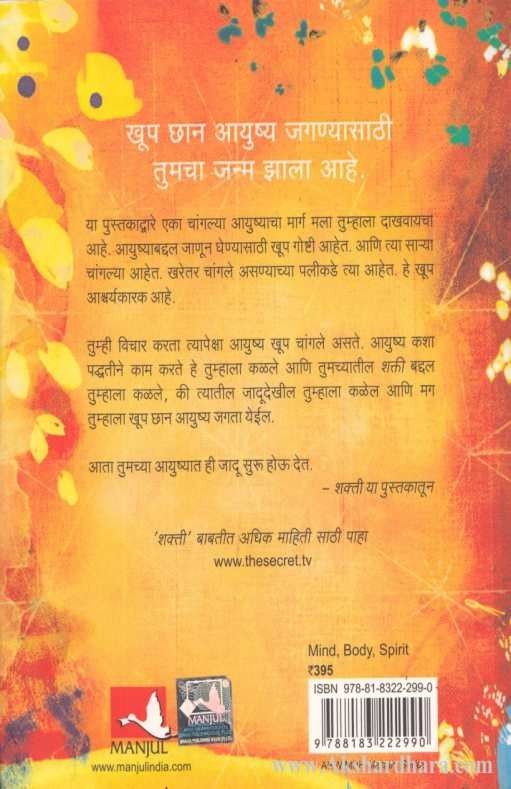 खूप छान आयुष्य जगण्यासाठी
तुमचा जन्म झाला आहे.
या पुस्तकाद्वारे एका चांगल्या आयुष्याचा मार्ग मला तुम्हाला दाखवायचा
आहे. आयुष्याबद्दल जाणून घेण्यासाठी खूप गोष्टी आहेत. आणि त्या साऱ्या
चांगल्या आहेत. खरेतर चांगले असण्याच्या पलीकडे त्या आहेत. हे खूप
आश्चर्यकारक आहे.
तुम्ही विचार करता त्यापेक्षा आयुष्य खूप चांगले असते. आयुष्य कशा
पद्धतीने काम करते हे तुम्हाला कळले आणि तुमच्यातील शक्ती बद्दल
तुम्हाला कळले, की त्यातील जादूदेखील तुम्हाला कळेल आणि मग
तुम्हाला खूप छान आयुष्य जगता येईल.
आता तुमच्या आयुष्यात ही जादू सुरू होऊ देत.
– शक्ती या पुस्तकातून
'शक्ती' बाबतीत अधिक माहिती साठी पाहा
www.thesecret.tv
Mind, Body, Spirit
₹395
ISBN 978-81-8322-299-0
9 788183 222990
MANJUL
www.manjulindia.com
MANJUL
www.akshardhara.com